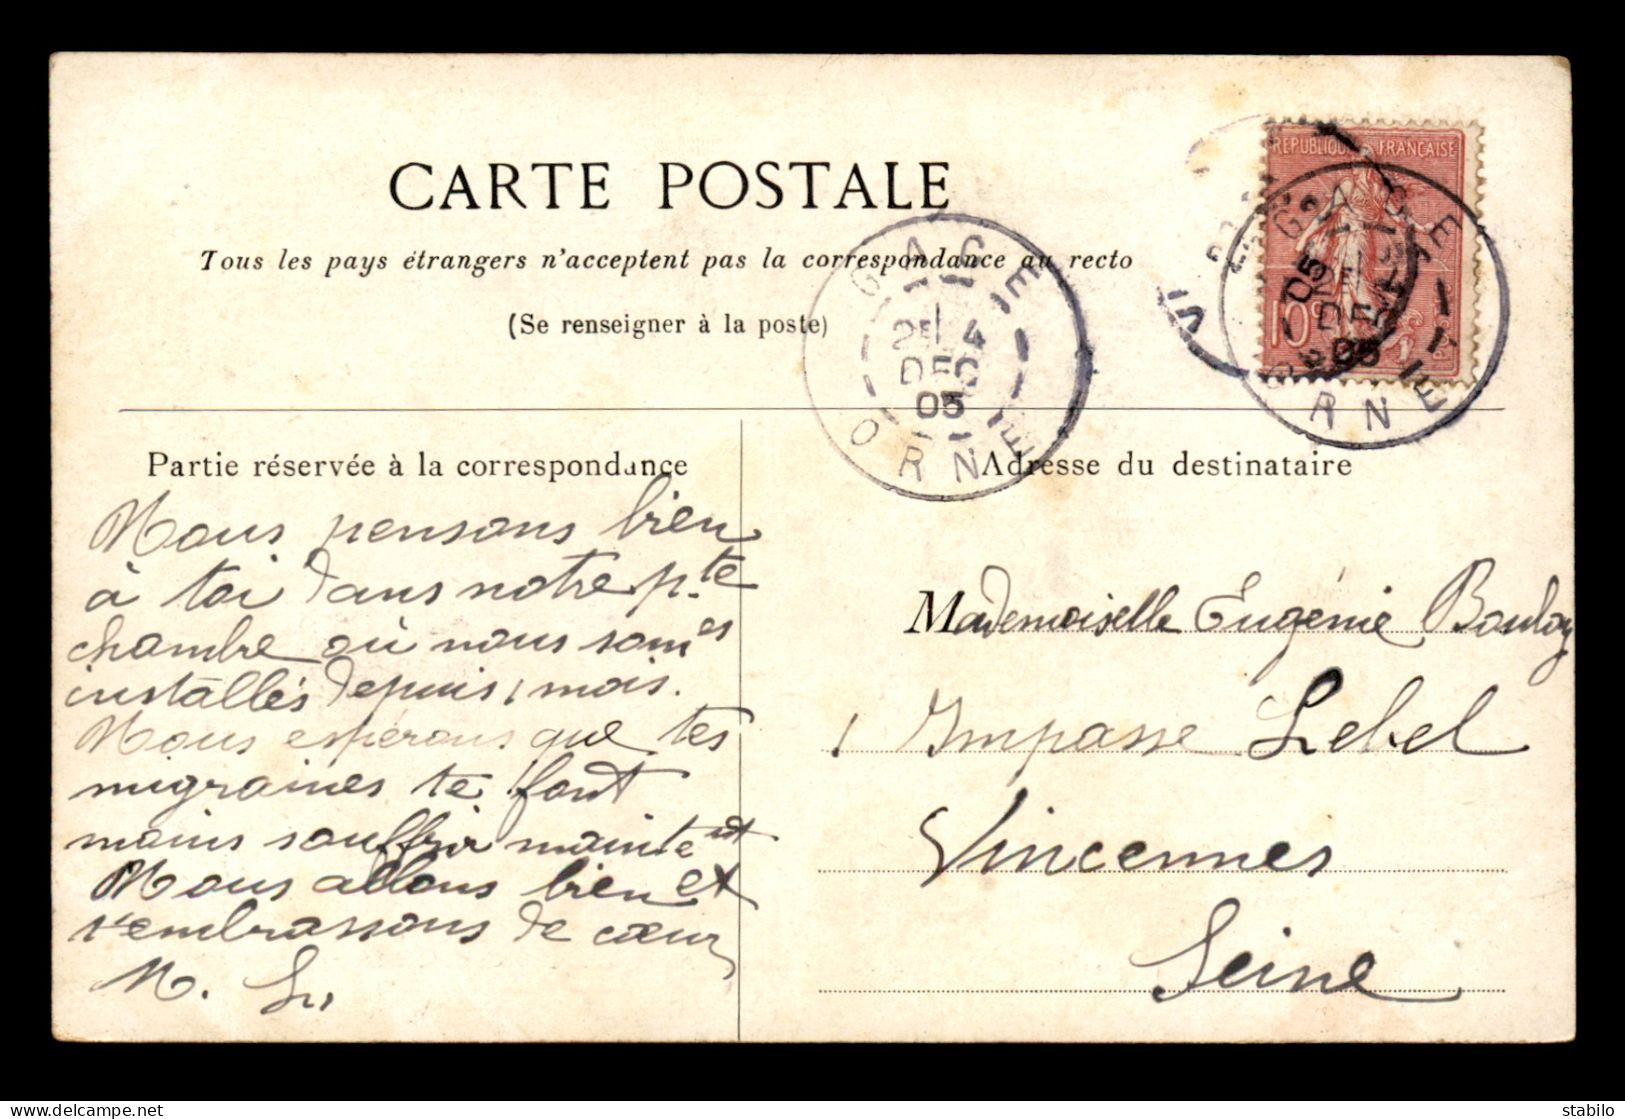 CARTE POSTALE
Tous les pays étrangers n'acceptent pas la correspondance au recto
(Se renseigner à la poste)
REPUBLIQUE FRANÇAISE
10c
GACE
25 4
DEC
05
ORNE
GACE
DEC
05
ORNE
Partie réservée à la correspondance
Nous pensons bien
à toi dans notre pte
chambre où nous somes
installés depuis 1 mois.
Nous espérons que tes
migraines te font
moins souffrir maintent
Nous allons bien et
t'embrassons de cœur
M. L.
Adresse du destinataire
Mademoiselle Eugénie Boulay
1 Impasse Lebel
Vincennes
Seine
www.delcampe.net
stabilo